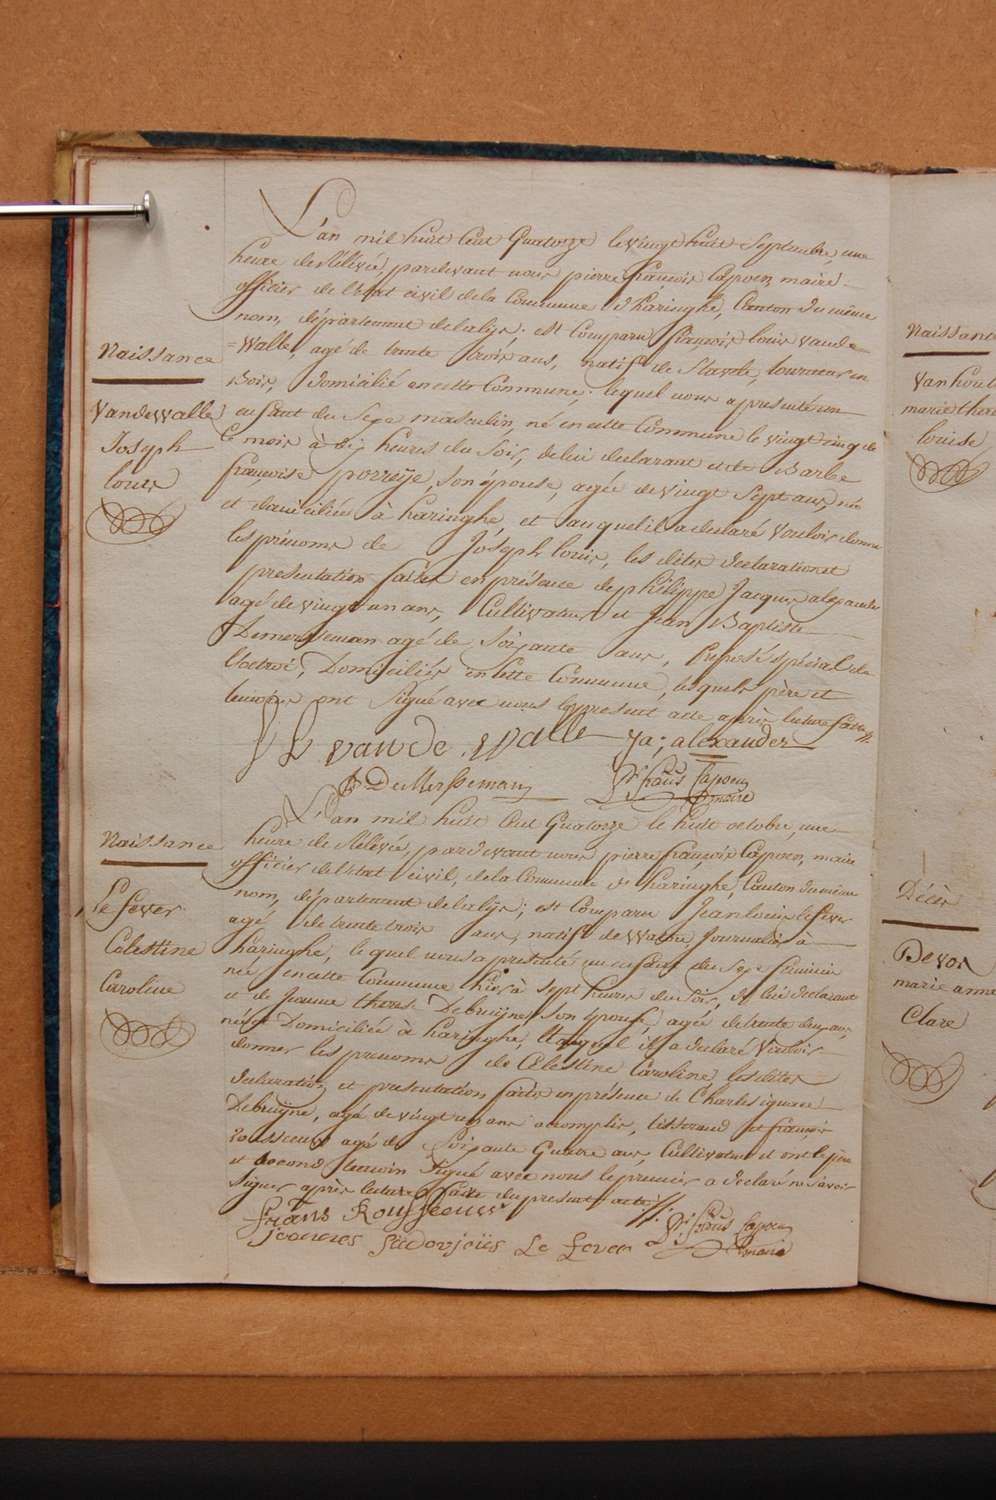 L'an mil huit Cent Quatorze le vingt huit Septembre, une
heure de Rélévée, pardevant nous pierre françois Capoen maire
officier de l'état civil de la Commune d'haringhe, Canton du même
nom, département de la lys; est Comparu françois louis vande
=Walle, agé de trente trois ans, natif de Stavele, tourneur en
Bois, domicilié en cette Commune; lequel nous a presenté un
enfant du Sexe masculin, né en cette Commune le vingt cinq de
Ce mois à dix heures du Soir, de lui declarant et de Barbe
françoise porreije, Son épouse, agée de vingt Sept ans, née
et domiciliée à haringhe, et auquel il a declaré vouloir donner
les prénoms de Joseph louis, les dites declaration et
presentation faites en présence de philippe Jacques alexander
agé de vingt un ans, Cultivateur et Jean Baptiste
Demersseman agé de Soixante ans, Preposé Spécial de
l'octroi, Domiciliés en Cette Commune, les quels père et
temoins ont Signé avec nous le present acte après lecture faite
f L vande walle ja; alexander
B DeMersseman Pre frans Capoen
maire
Naissance
Vandewalle
Joseph
louis
L'an mil huit Cent Quatorze le huit octobre, une
heure de Rélévée, pardevant nous pierre françois Capoen, maire
officier de l'état civil, de la Commune de haringhe, Canton du même
nom, département de la lys; est Comparu Jean louis le fever
agé de trente trois ans, natif de Watou Journalier à
haringhe, lequel nous a presenté un enfant du Sexe feminin
née en cette Commune hier à Sept heures du Soir, de lui declarant
et de Jeanne theres. Debruijne Son épouse, agée de trente deux ans,
née et Domiciliée à haringhe, et auquel il a declaré Vouloir
donner les prenoms de Celestine Caroline, les dites
declaration et presentation faites en présence de Charles ignace
Debruijne, agé de vingt un ans accomplis, tisserand et françois
rousseeuw agé de Soixante Quatre ans, Cultivateur et ont le père
et second temoin Signé avec nous le premier a declaré ne Savoir
Signer après lecture faite du present acte
frans Rousseeuw
joannes le fever Pre frans Capoen
maire
Naissance
Le fever
Célestine
Caroline
Naissance
Vanhout
marie there
louise
Décès
Devos
marie anne
Clare